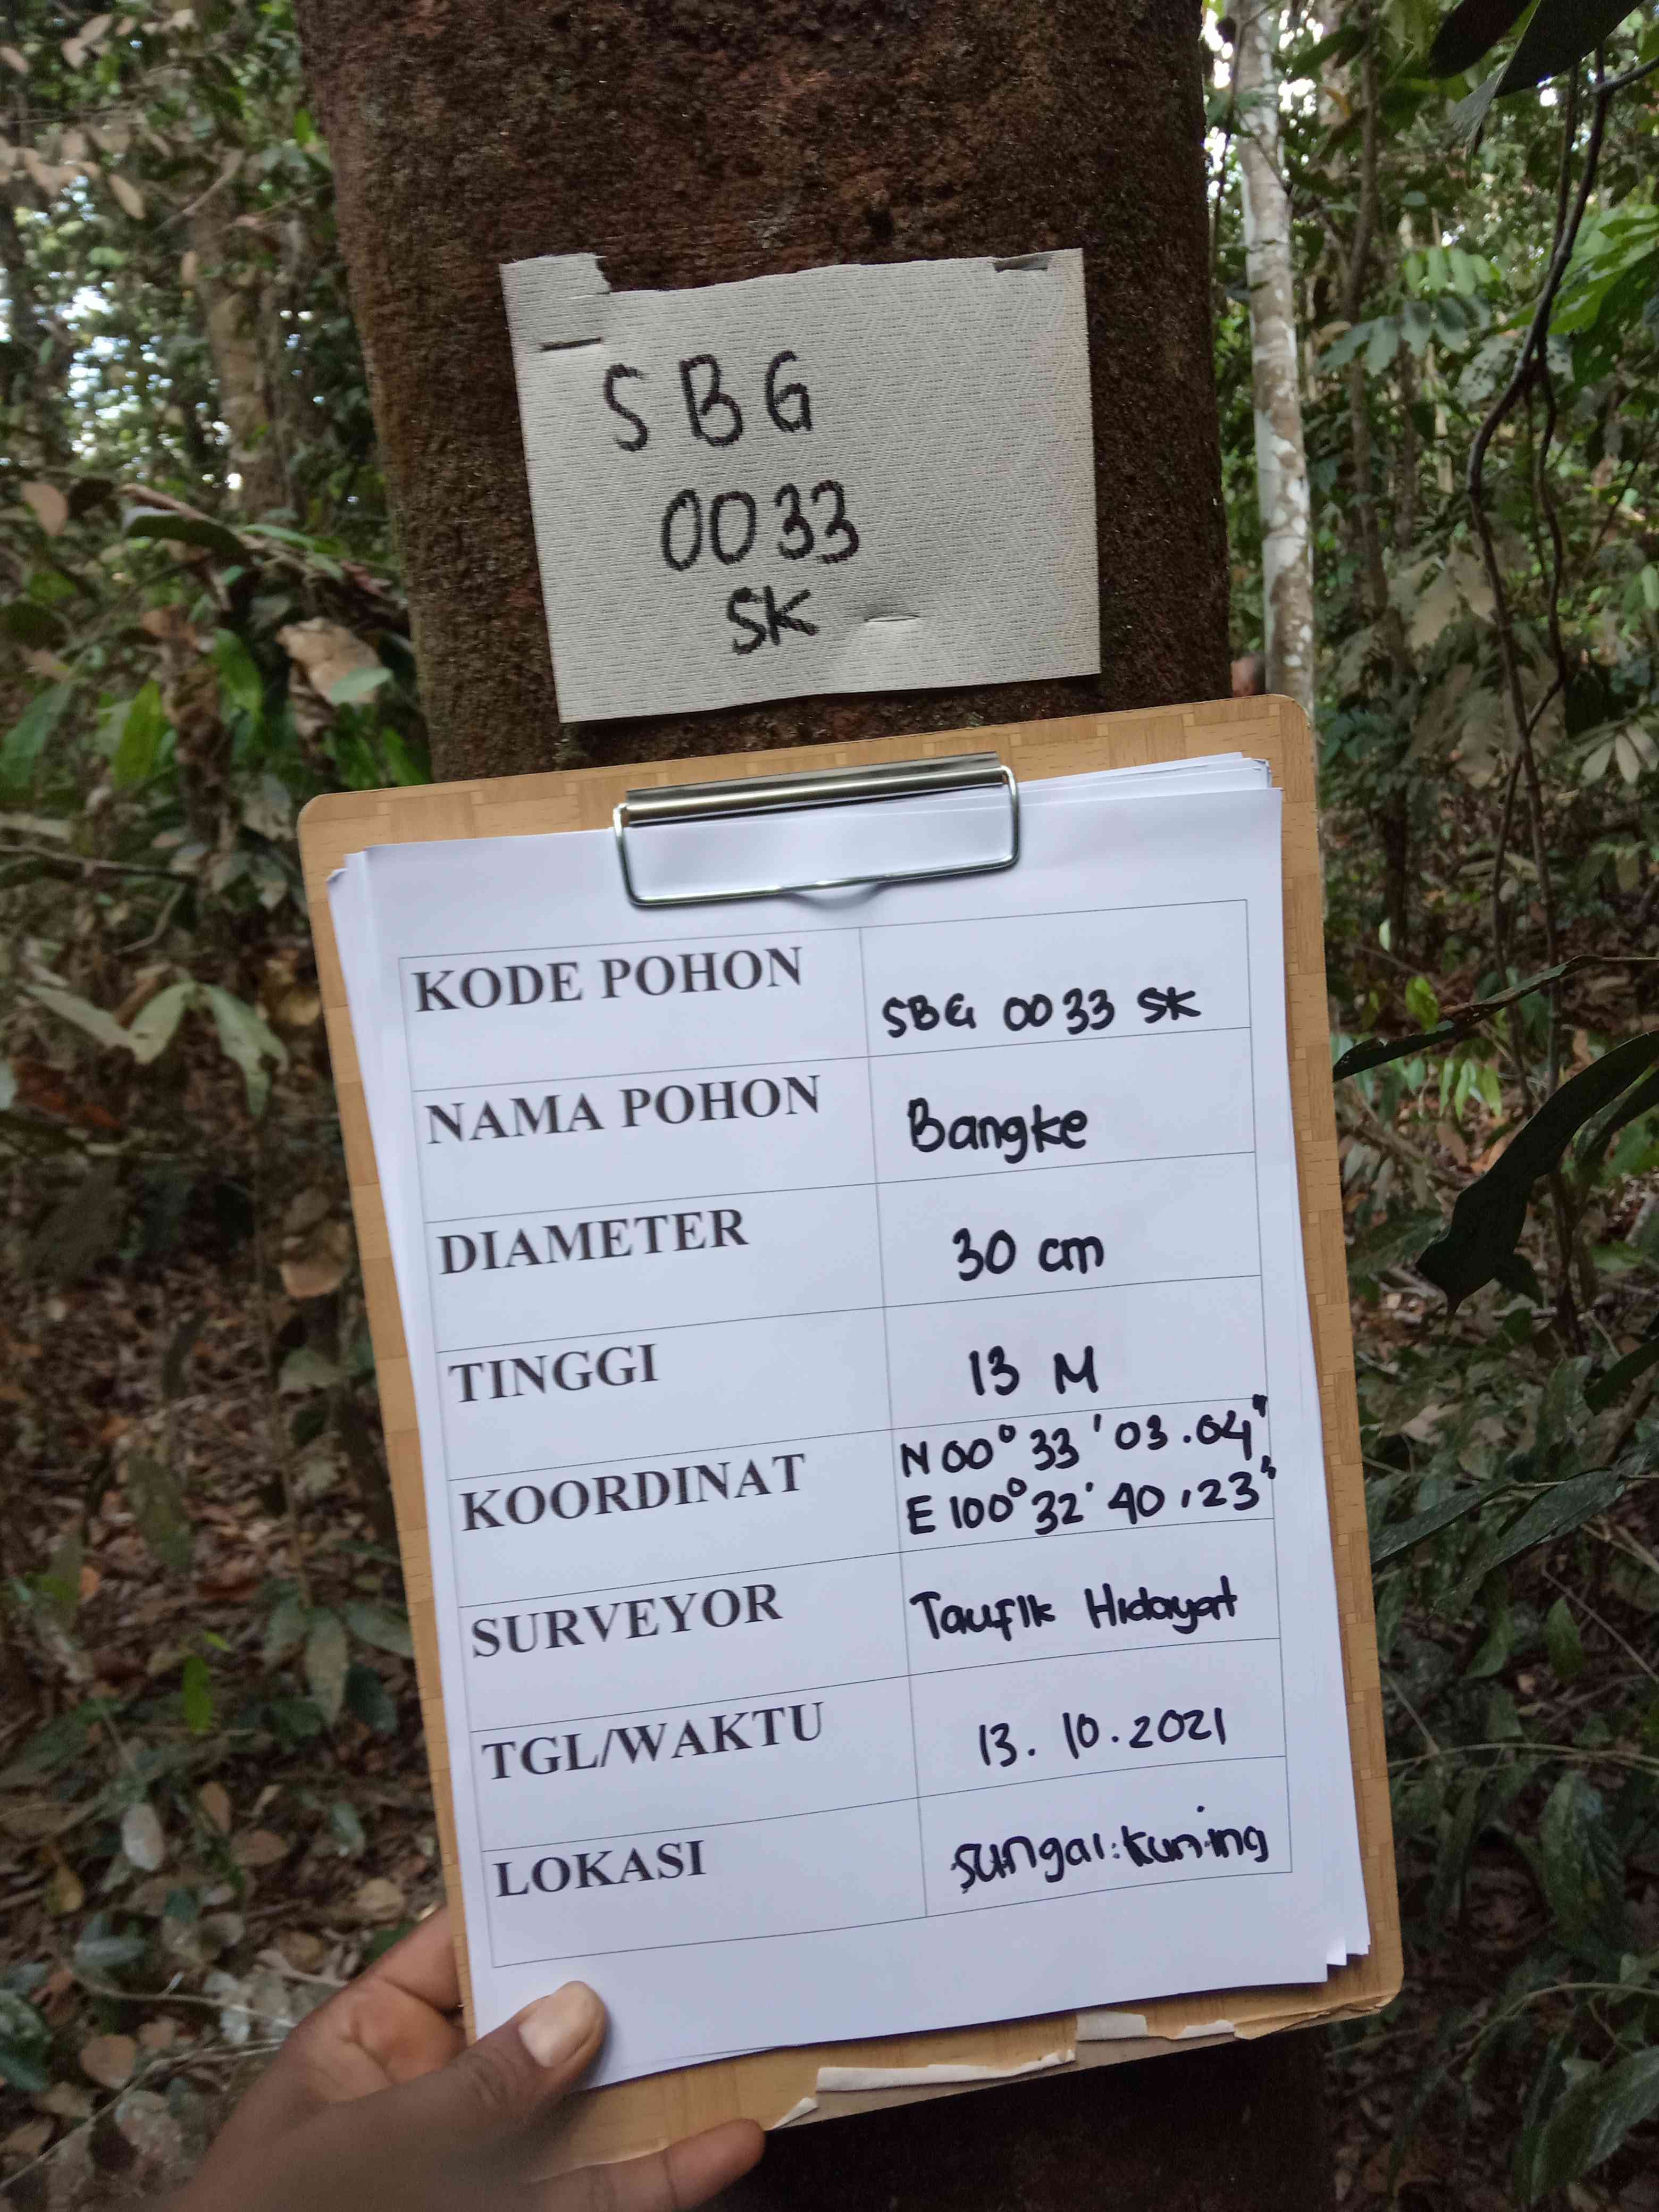 SBG
0033
SK
KODE POHON SBG 0033 SK
NAMA POHON Bangke
DIAMETER 30 cm
TINGGI 13 M
KOORDINAT N 00° 33 ' 03.04"
E 100° 32' 40,23"
SURVEYOR Taufik Hidayat
TGL/WAKTU 13.10.2021
LOKASI sungai kuning